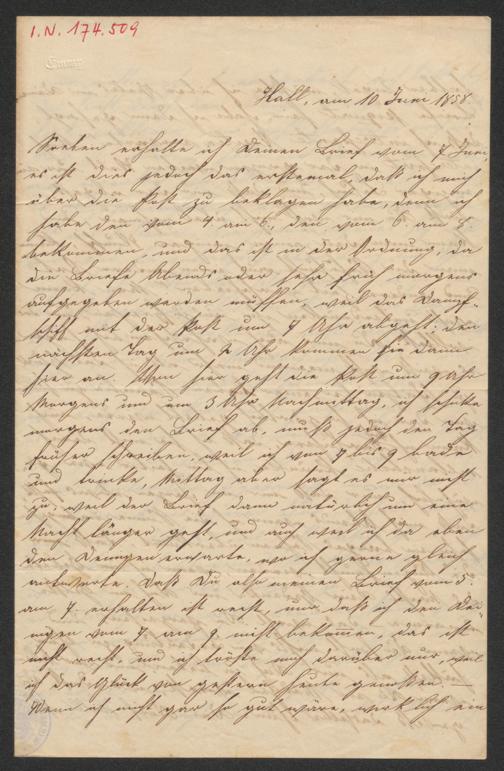 I.N. 174.509
Hall, am 10 Juni 1858
Soeben erhalte ich Deinen Brief vom 7 Juni,
es ist dies jedoch das erstemal, daß ich mich
über die Post zu beklagen habe, denn ich
habe den vom 4. am 6., den vom 6. am 8.
bekommen, und das ist in der Ordnung, da
die Briefe Abends oder sehr früh morgens
aufgegeben werden müssen, weil das Dampf-
schiff mit der Post um 7 Uhr abgeht; den
nächsten Tag um 2 Uhr kommen sie dann
hier an. Von hier geht die Post um 9 Uhr
Morgens und um 3 Uhr Nachmittag, ich schicke
morgens den Brief ab, muß jedoch den Tag
früher schreiben, weil ich von 7 bis 9 bade
und trinke, Mittag aber sagt es mir nicht
zu, weil der Brief dann natürlich um eine
Nacht länger geht, und auch weil ich da eben
den Deinigen erwarte, wo ich gerne gleich
antworte. Daß Du also meinen Brief vom 5.
am 7. erhalten ist recht, nur daß ich den Dei-
nigen vom 7. am 9. nicht bekommen, das ist
nicht recht, und ich tröste mich darüber nur, weil
ich das Glück von gestern heute genossen. —
Wenn ich nicht gar so gut wäre, wirklich ein